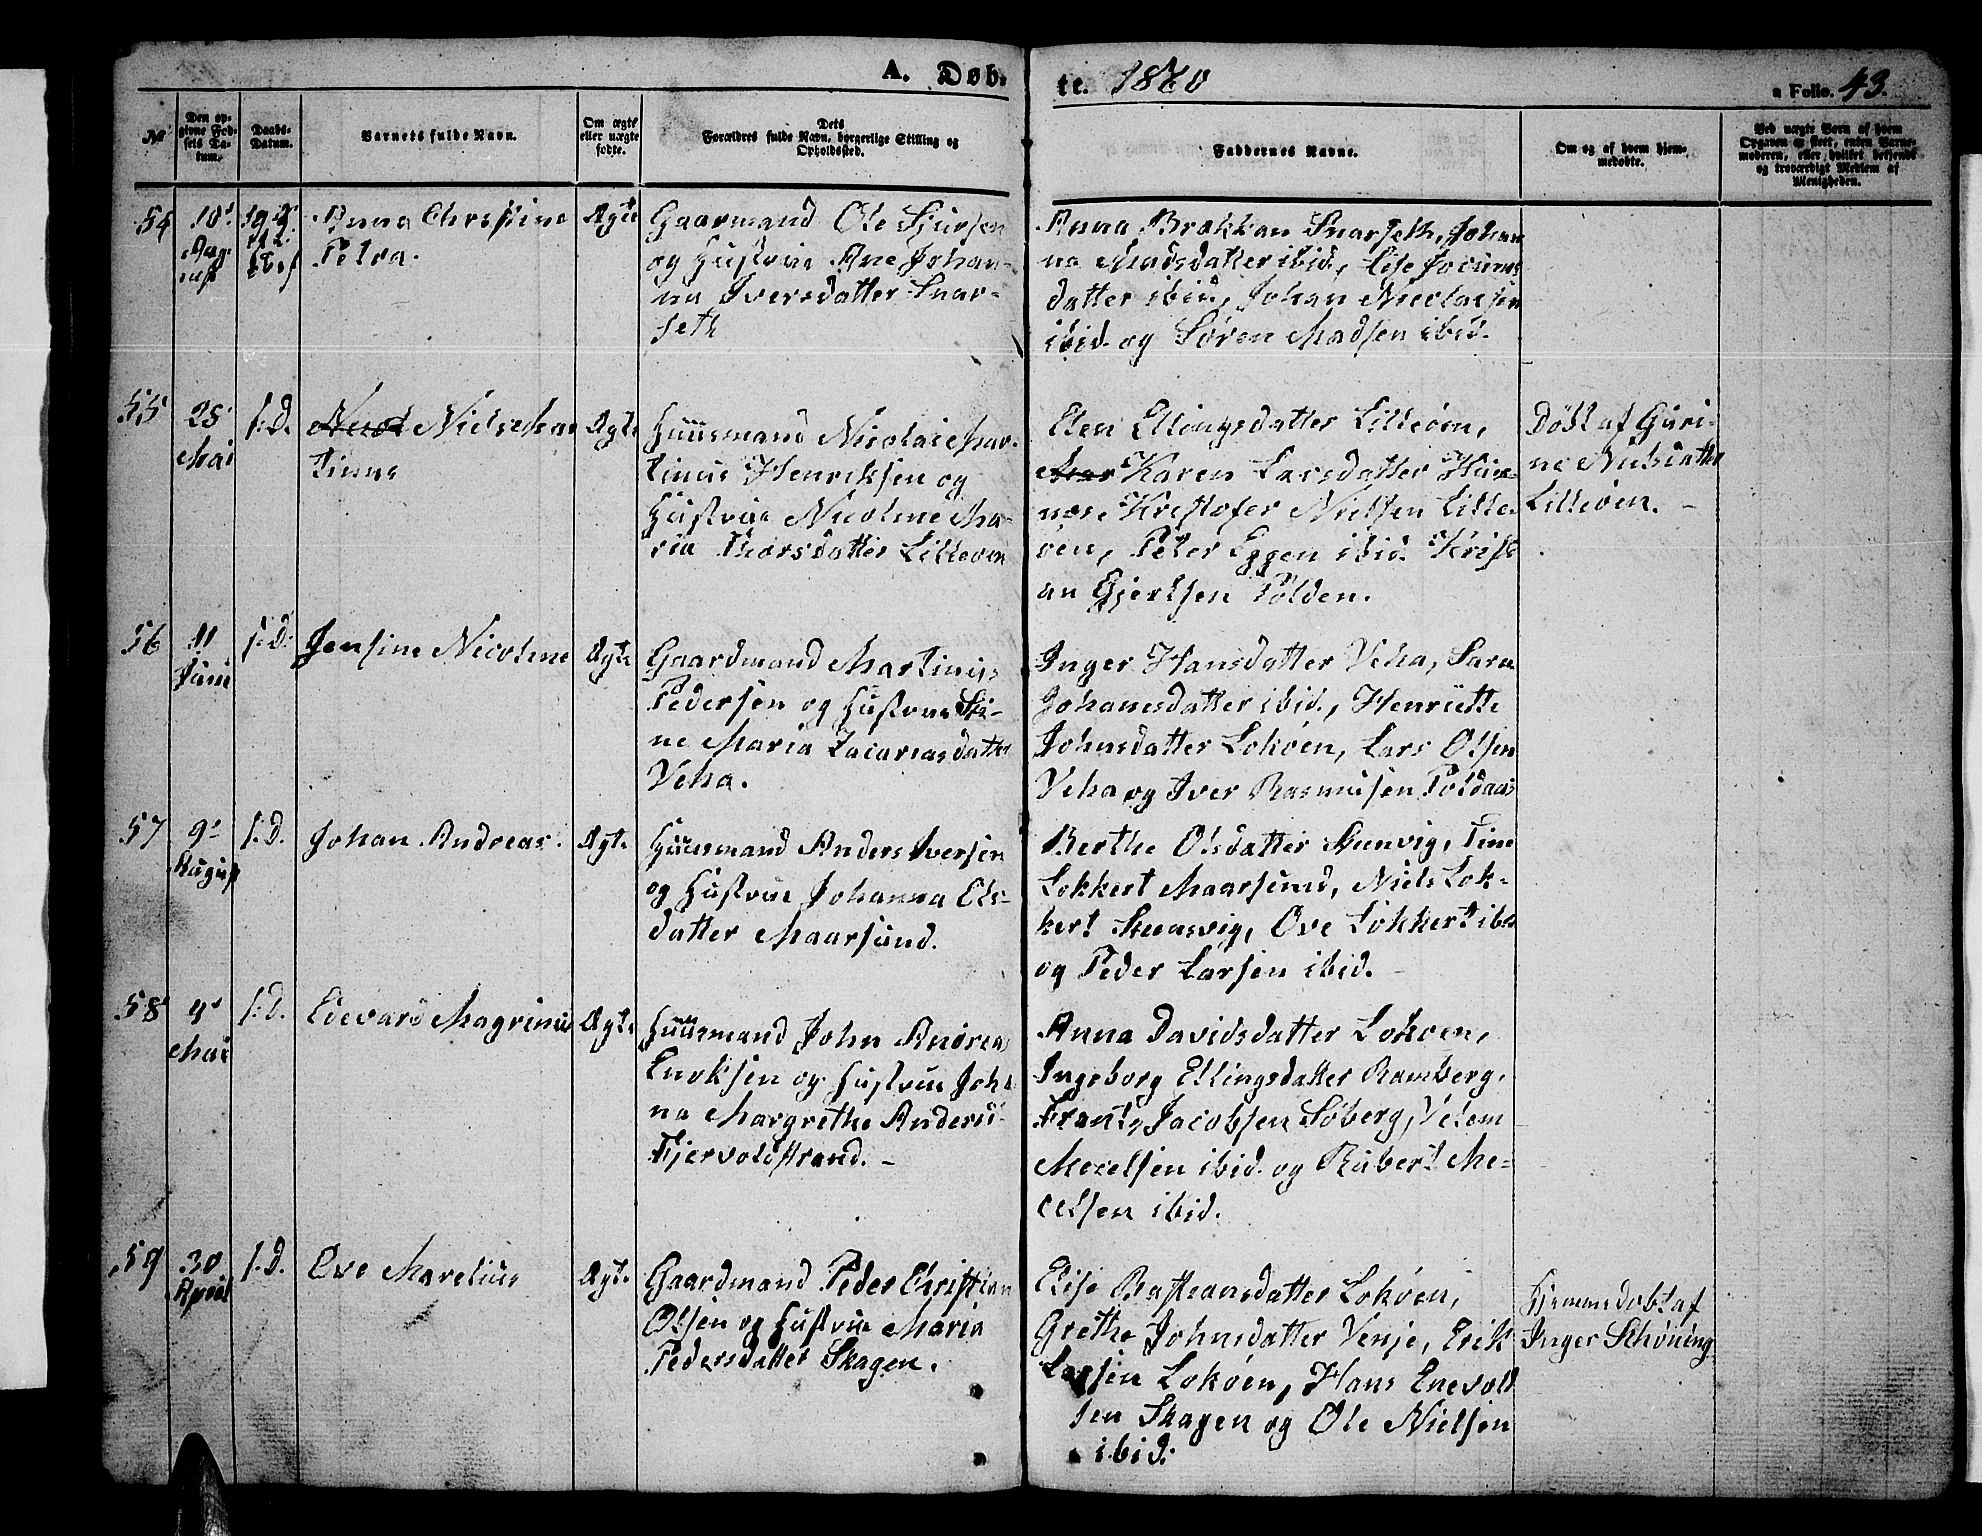 A. Døb-
te. 1860
a Folio. 43.
№
Den op-
givne Fød-
sels Da-
tum.
Daabs-
Datum.
Barnets fulde Navn.
Om ægte
eller uægte
fødte.
Dets
Forældres fulde Navn, borgerlige Stilling og
Opholdssted.
Faddernes Navne.
Om og af hvem hjem-
medøbte.
Ved uægte Børn af hvem
Opgaven er skeet, enten Barne-
moderen, eller hvilket betjendt
og troværdigt Medlem af
Menigheden.
54
Anna Christine
Petra.
Ægte
Gaarmand Ole Sjursen
og Hustrue Ane Johan-
na Iversdatter Snar-
seth
Anna Brækkan Snarseth, Johan
na Madsdatter ibid,
datter ibid, Johan Nicolaisen
ibid. og Søren Madsen ibid.
55
25
Mai
s:D.
Niels Mar
tinus
Ægte
Huusmand Nicolai Mar-
tinus Henriksen og
Hustrue Nicoline Ma-
ria Thorsdatter Lilleøen
Elen Ellingsdatter Lilleøen,
Karen Larsdatter
Kristofer Nielsen Lille-
øen, Peter Eggen ibid. Krist
an Gjertsen Polden.
Døbt af Guri-
ne Nielsdatter
Lilleøen. -
56
11
Juni
s:D.
Jensine Nicoline
Ægte
Gaardmand Martinus
Pedersen og Hustrue
ne Maria Zacariasdatter
Veha.
Inger Hansdatter Veha, Sara
Johanesdatter ibid., Henriette
Johnsdatter Lokøen, Lars Olsen
Veha og Iver Rasmusen Poldaas
57
9
August
s:D.
Johan Andreas.
Ægte
Huusmand Anders Iversen
og Hustrue Johanna Ols-
datter Maarsund.
Berthe Olsdatter Steenvig, Tine
Lokkert Maarsund, Niels Lok-
kert Steensvig, Ove Lokkert ibd
og Peder Larsen ibid. -
58
Mai
s:D.
Edevard Magrinus
Ægte
Huusmand John Andreas
Enoksen og Hustrue Joha
na Margrethe Andersd
Fjervoldstrand. -
Anna Davidsdatter Lokøen,
Ingeborg Ellingsdatter Ramberg,
Frants Jacobsen Søberg, Velom
Mecelsen ibid. og Rubert Me-
celsen ibid.
59
30
April
s:D.
Ove Marelius
Ægte
Gaardmand Peder Christian
Olsen og Hustrue Maria
Pedersdatter Skagen.
Elise Basteansdatter Lokøen,
Grethe Johnsdatter Venje, Erik
Larsen Lokøen, Hans Enevold
sen Skagen og Ole Nielsen
ibid.
Hjemmedøbt af
Inger Schøning